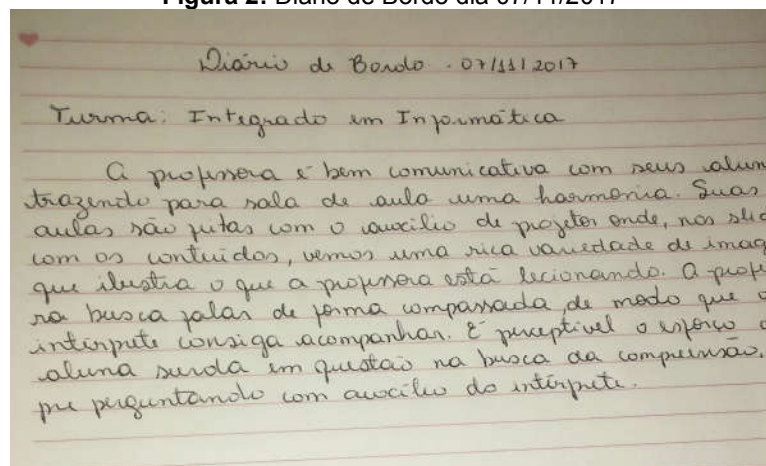 Figura 2: Diário de Bordo dia 07/11/2017
Diário de Bordo . 07/11/2017
Turma: Integrado em Informática
A professora é bem comunicativa com seus alun
trazendo para sala de aula uma harmonia. Suas
aulas são feitas com o auxílio de projetor onde, nos slid
com os conteúdos, vemos uma rica variedade de imag
que ilustra o que a professora está lecionando. A profe
ra busca falar de forma compassada, de modo que o
intérprete consiga acompanhar. É perceptível o esforço d
aluna surda em questão na busca da compreensão,
pre perguntando com auxílio do intérprete.